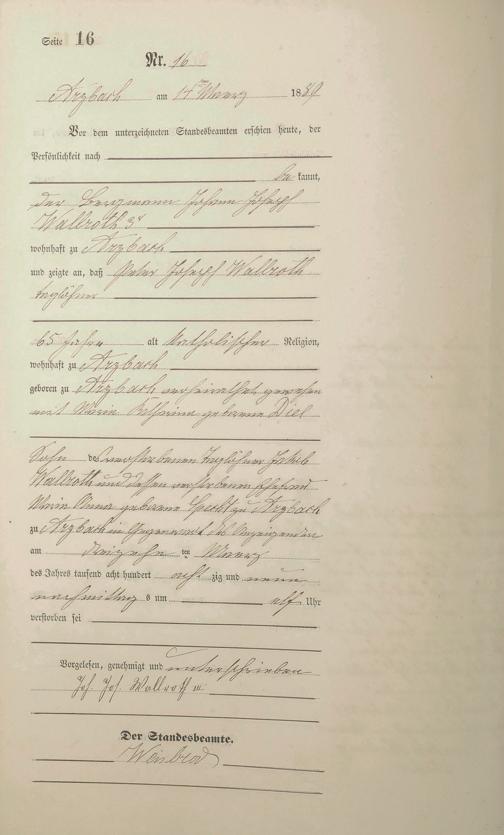 Seite 16
Nr. 16
Arzbach am 14ten Maerz 1889
Vor dem unterzeichneten Standesbeamten erschien heute, der
Persönlichkeit nach
be kannt,
der Bergmann Johann Joseph
Wallroth 3r
wohnhaft zu Arzbach
und zeigte an, daß Peter Joseph Wallroth
Taglöhner
65 Jahre alt katholischer Religion,
wohnhaft zu Arzbach
geboren zu Arzbach verheirathet gewesen
mit Maria Katharina geborene Diel
Sohn des verstorbenen Taglöhner Jakob
Wallroth und dessen verstorbenen Ehefrau
Maria Anna geborene Specht zu Arzbach
zu Arzbach in Gegenwart des Anzeigenden
am dreizehn ten Maerz
des Jahres tausend acht hundert acht zig und neun
nachmittag s um elf Uhr
verstorben sei
Vorgelesen, genehmigt und unterschrieben
Joh. Jos. Wallroth
Der Standesbeamte.
Weisbrod